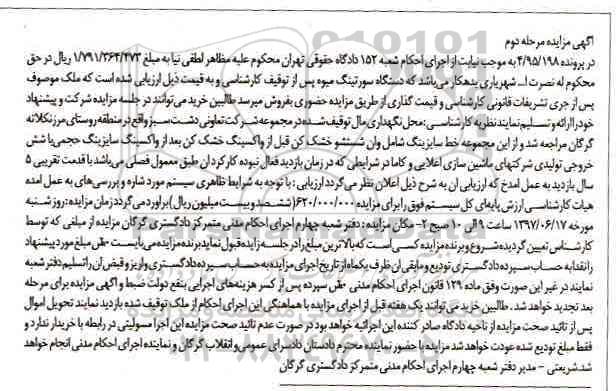 آگهی مزایده مرحله دوم
در پرونده ۴/۹۵/۱۹۸ به موجب نیابت از اجرای احکام شعبه ۱۵۲ دادگاه حقوقی تهران محکوم علیه مظاهر لطفی نیا به مبلغ ۱/۷۹۱/۳۶۴/۴۷۳ ریال در حق
محکوم له نصرت ا... شهریاری بدهکار می‌باشد که دستگاه سورتینگ میوه پس از توقیف کارشناسی و به قیمت ذیل ارزیابی شده است که ملک موصوف
پس از جری تشریفات قانونی کارشناسی و قیمت گذاری از طریق مزایده حضوری بفروش میرسد طالبین خرید می‌توانند در جلسه مزایده شرکت و پیشنهاد
خود را ارائه و تسلیم نمایند نظریه کارشناسی: محل نگهداری مال توقیف شده در مجموعه شرکت تعاونی دشت سبز واقع در منطقه روستای مرزنکلاته
گرگان مراجعه شد و از این مجموعه خط سایزینگ شامل وان شستشو خشک کن قبل از واکسینگ خشک کن بعد از واکسینگ سایزینگ حجمی با شش
خروجی تولیدی شرکتهای ماشین سازی اعلایی و کاما در شرایطی که در زمان بازدید فعال نبوده کارکرد آن طبق معمول فصلی می‌باشد با قدمت تقریبی ۵
سال بازدید به عمل آمد که ارزیابی آن به شرح ذیل اعلان نظر می‌گردد ارزیابی: با توجه به شرایط ظاهری سیستم مورد اشاره و بررسی‌های به عمل آمده
هیات کارشناسی ارزش پایه‌ای کل سیستم فوق را برای مزایده ۶۲۰/۰۰۰/۰۰۰ (ششصد و بیست میلیون ریال) برآورد می‌گردد زمان مزایده: روز شنبه
مورخه ۱۳۹۷/۰۶/۱۷ ساعت ۹ الی ۱۰ صبح ۲- مکان مزایده: دفتر شعبه چهارم اجرای احکام مدنی متمرکز دادگستری گرگان مزایده از مبلغی که توسط
کارشناس تعیین گردیده شروع و برنده مزایده کسی است که بالاترین مبلغ را در جلسه مزایده قبول نماید برنده مزایده می‌بایست ۱۰٪ مبلغ مورد پیشنهاد
را نقدا به حساب سپرده دادگستری تودیع و مابقی آن ظرف یکماه از تاریخ اجرای مزایده به حساب سپرده دادگستری واریز و قبض آن را تسلیم دفتر شعبه
نمایند در غیر این صورت وفق ماده ۱۲۹ قانون اجرای احکام مدنی ۱۰٪ سپرده پس از کسر هزینه‌های اجرایی بنفع دولت ضبط و آگهی مزایده برای مرحله
بعد تجدید خواهد شد. طالبین خرید می‌توانند یک هفته قبل از اجرای مزایده با هماهنگی این اجرای احکام از ملک توقیف شده بازدید نمایند تحویل اموال
پس از تائید صحت مزایده از ناحیه دادگاه صادر کننده این اجرائیه خواهد بود در صورت عدم تائید صحت مزایده این اجرا مسولیتی در رابطه با خریدار ندارد و
فقط مبلغ تودیع شده عودت خواهد شد مزایده با حضور نماینده محترم دادستان دادسرای عمومی و انقلاب گرگان و نماینده اجرای احکام مدنی انجام خواهد
شد. شریعتی - مدیر دفتر شعبه چهارم اجرای احکام مدنی متمرکز دادگستری گرگان